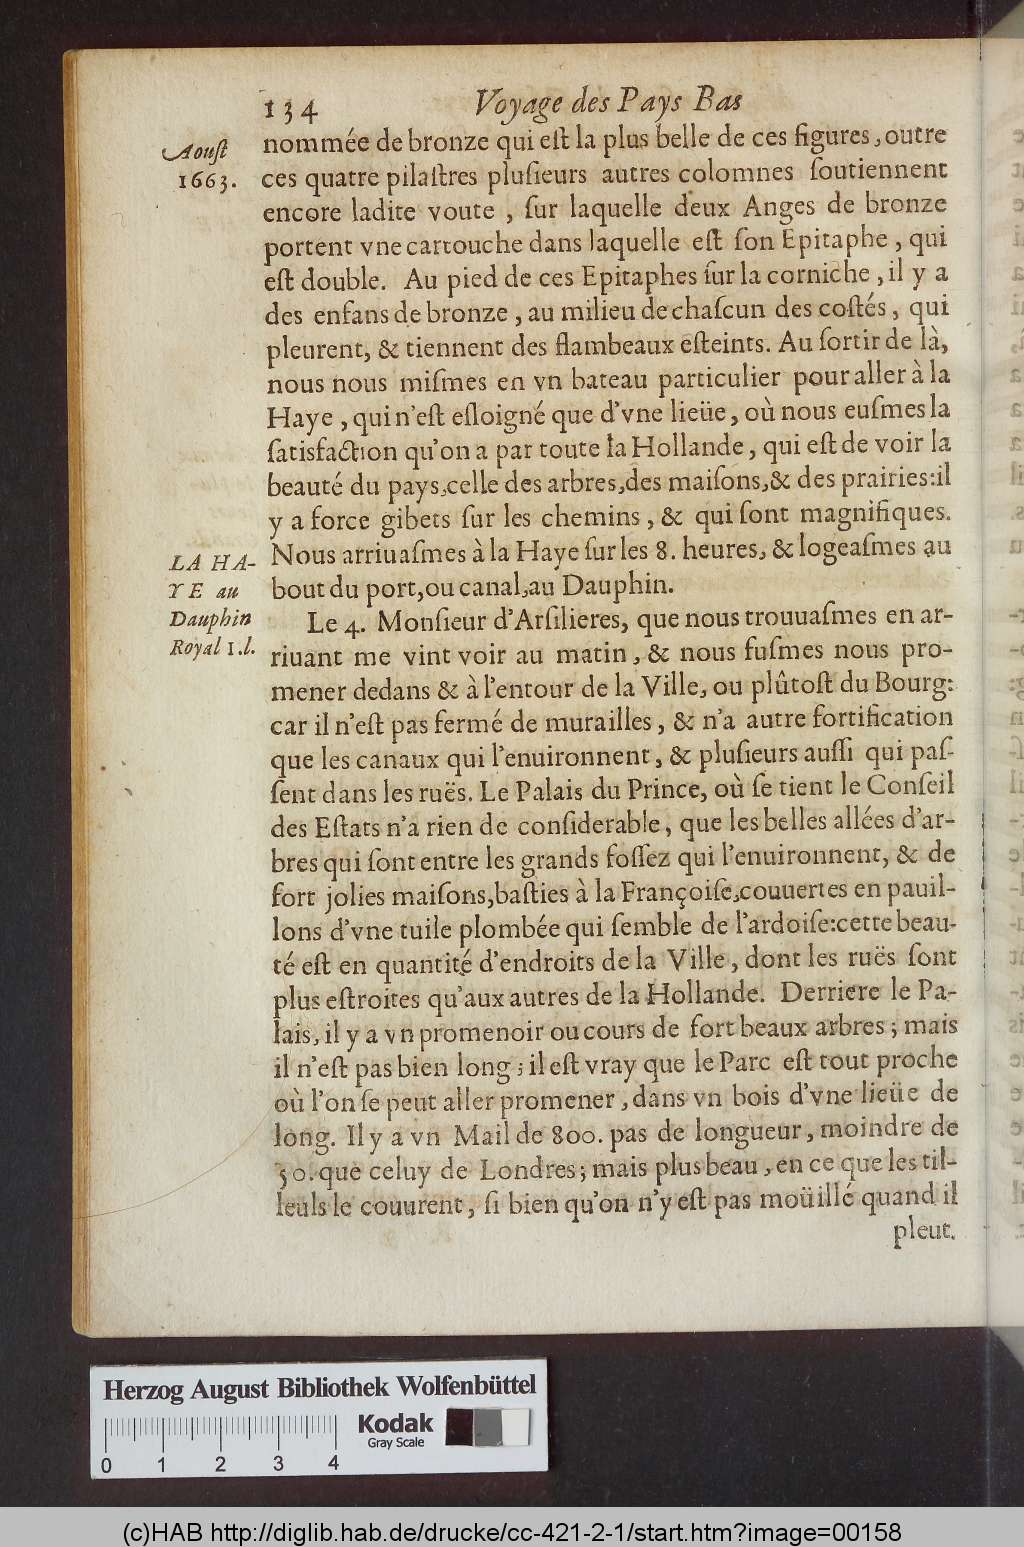 134 Voyage des Pays Bas
Aouſt
1663.
nommée de bronze qui eſt la plus belle de ces figures, outre
ces quatre pilaſtres pluſieurs autres colomnes ſoutiennent
encore ladite voute, ſur laquelle deux Anges de bronze
portent vne cartouche dans laquelle eſt ſon Epitaphe, qui
eſt double. Au pied de ces Epitaphes ſur la corniche, il y a
des enfans de bronze, au milieu de chaſcun des coſtés, qui
pleurent, & tiennent des flambeaux eſteints. Au ſortir de là,
nous nous miſmes en vn bateau particulier pour aller à la
Haye, qui n'eſt eſloigné que d'vne lieüe, où nous euſmes la
ſatisfaction qu'on a par toute la Hollande, qui eſt de voir la
beauté du pays, celle des arbres, des maiſons, & des prairies: il
y a force gibets ſur les chemins, & qui ſont magnifiques.
Nous arriuaſmes à la Haye ſur les 8. heures, & logeaſmes au
bout du port, ou canal, au Dauphin.
LA HA-
YE au
Dauphin
Royal 1.l.
Le 4. Monſieur d'Arſilieres, que nous trouuaſmes en ar-
riuant me vint voir au matin, & nous fuſmes nous pro-
mener dedans & à l'entour de la Ville, ou plûtoſt du Bourg:
car il n'eſt pas fermé de murailles, & n'a autre fortification
que les canaux qui l'enuironnent, & pluſieurs auſſi qui paſ-
ſent dans les ruës. Le Palais du Prince, où ſe tient le Conſeil
des Eſtats n'a rien de conſiderable, que les belles allées d'ar-
bres qui ſont entre les grands foſſez qui l'enuironnent, & de
fort jolies maiſons, baſties à la Françoiſe, couuertes en pauil-
lons d'vne tuile plombée qui ſemble de l'ardoiſe: cette beau-
té eſt en quantité d'endroits de la Ville, dont les ruës ſont
plus eſtroites qu'aux autres de la Hollande. Derriere le Pa-
lais, il y a vn promenoir ou cours de fort beaux arbres; mais
il n'eſt pas bien long; il eſt vray que le Parc eſt tout proche
où l'on ſe peut aller promener, dans vn bois d'vne lieüe de
long. Il y a vn Mail de 800. pas de longueur, moindre de
50. que celuy de Londres; mais plus beau, en ce que les til-
leuls le couurent, ſi bien qu'on n'y eſt pas moüillé quand il
pleut.
Herzog August Bibliothek Wolfenbüttel
Kodak
Gray Scale
0 1 2 3 4
(c)HAB http://diglib.hab.de/drucke/cc-421-2-1/start.htm?image=00158